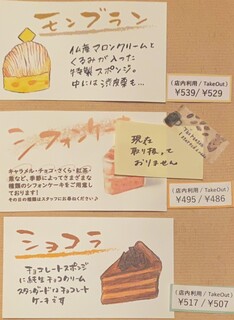 モンブラン
仏産マロンクリームと
くるみが入った
特製スポンジ。
中には渋皮栗も…
(店内利用 / TakeOut)
¥539／¥529
シフォンケーキ
キャラメル・チョコ・さくら・紅茶・
栗など、季節によってさまざまな
種類のシフォンケーキをご用意し
ております！
その日の種類はスタッフにお尋ねください♪
現在
取り扱って
おりません
(店内利用 / TakeOut)
¥495／¥486
ショコラ
チョコレートスポンジ
に純生チョコクリーム
スタンダードなチョコレート
ケーキです
(店内利用 / TakeOut)
¥517／¥507